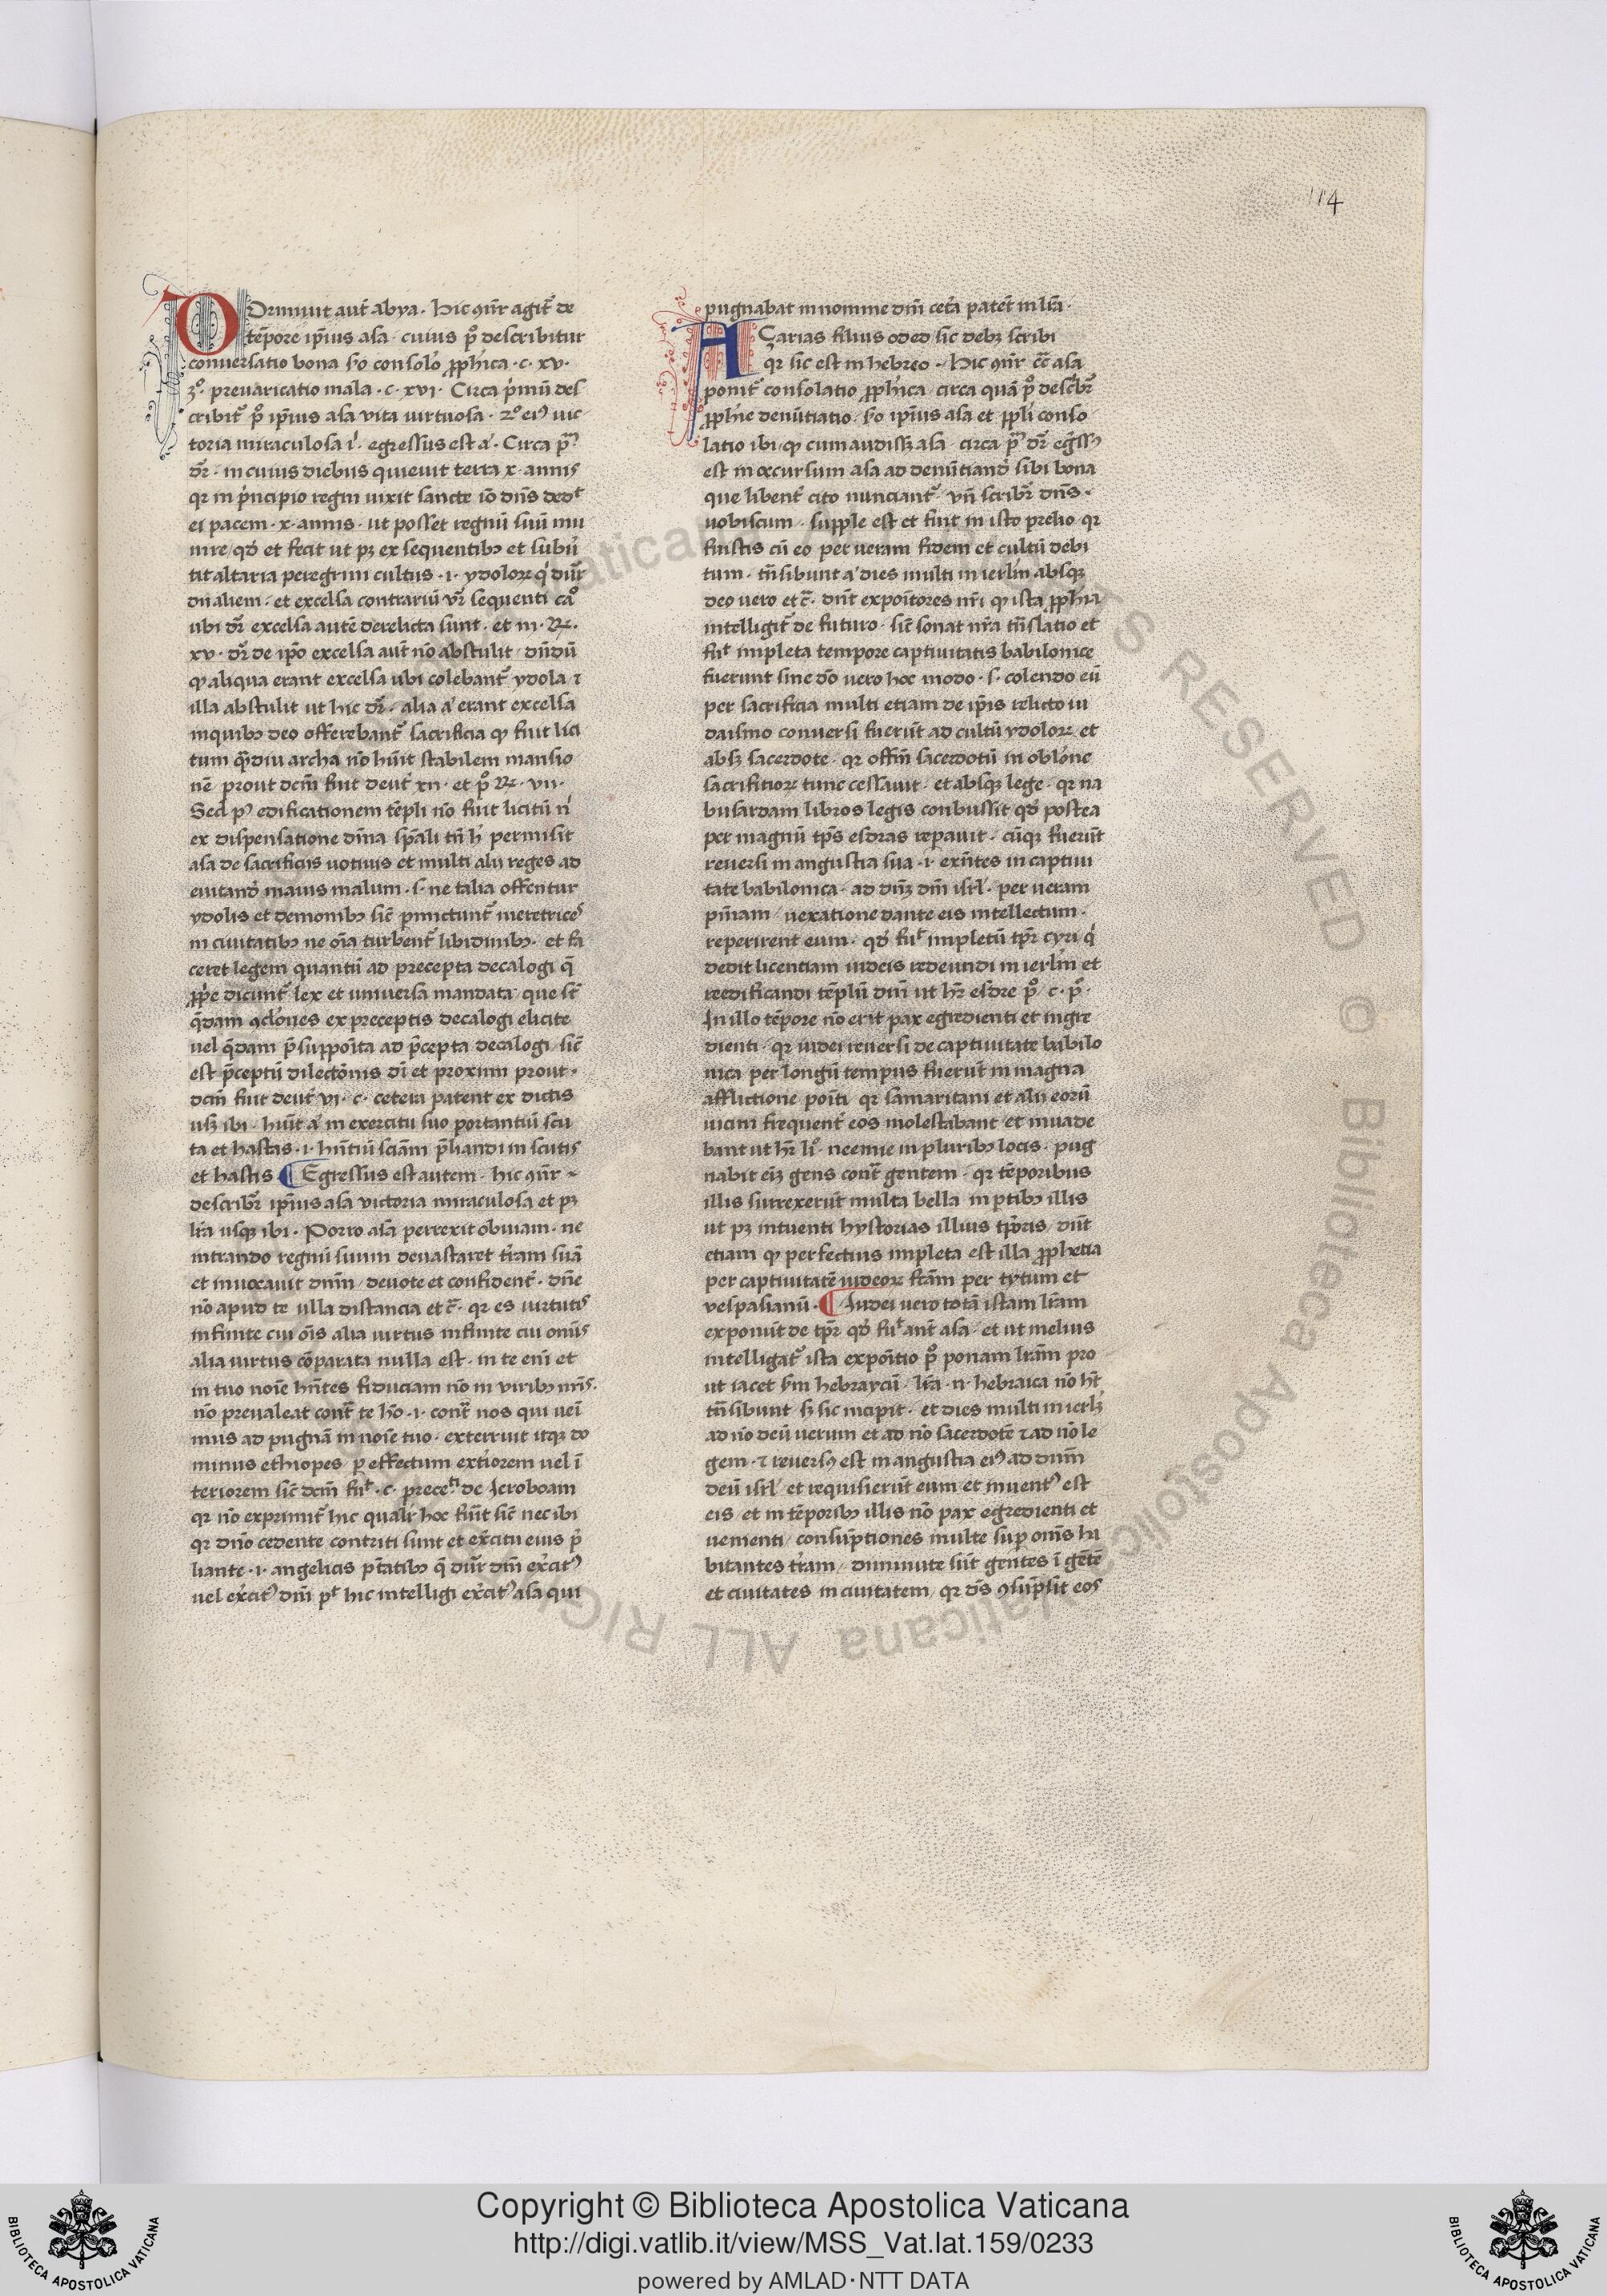 114
Dormiuit aut̃ abya · hic ꝯñr agit̃ de
tẽpore ip̃ius asa · cuius p̊ describitur
conuersatio bona · so consolo pp̃hica · c · xv ·
3º · preuaricatio mala · c · xvi · Circa p̃imũ des
cribit̃ p̊ ip̃ius asa vita virtuosa · 2º eiꝰ uic
toria miraculosa ĩ · egressus est aͥ · Circa pͫ
dr̃ · in cuius diebus quieuit terra x · annis
qr in p̃ncipio regni uixit sancte iõ dñs dedͭ
ei pacem · x · annis · ut posset regnũ suũ mu
nire / qđ et fecit ut pꝫ ex sequentibꝰ et subũ
tit altaria peregrini cultus · i · ydoloꝝ q̃ dũr
dii alieni · et excelsa contrariũ vr̃ sequenti cåͦ
ubi dr̃ excelsa autẽ derelicta sunt · et iii · R̃ ·
xv · dr̃ de ip̃o excelsa aut̃ nõ abstulit · dñdũ
ꝙ aliqua erant excelsa ubi colebant̃ ydola ⁊
illa abstulit ut hic dr̃ · alia aͥ erant excelsa
in quibꝰ deo offerebant̃ sacrificia ꝙ fuit lici
tum qͣ̃diu archa nõ hũit stabilem mansio
nẽ prout dcm̃ fuit deut̃ xii · et p̊ R̃ · vii ·
Sed pꝰ edificationem tẽpli nõ fuit licitũ nͥ
ex dispensatione diña sp̃ali tñ hͨ permisit
asa de sacrificiis uotiuis et multi alii reges ad
euitand̃ maius malum · s · ne talia offerentur
ydolis et demonibꝰ sic̃ p̃mictunt̃ meretrices
in ciuitatibꝰ ne oĩa turbent̃ libidinibꝰ · et fa
ceret legem quantũ ad precepta decalogi q̃
pp̃e dicunt̃ lex et uniuersa mandata que st̃
q̃dam ꝯclones ex preceptis decalogi elicite
uel q̃dam p̃suppoĩta ad p̃cepta decalogi / sic̃
est p̃ceptũ dilectõnis dĩ et proximi prout ·
dcm̃ fuit deut̃ vi · c · cetera patent ex dictis
usqꝫ ibi · hũit aͥ in exercitu suo portantiũ scu
ta et hastas · i · hñtiũ sciãm p̃liandi in scutis
et hastis · ¶ Egressus est autem · hic ꝯñr ~
describr̃ ip̃ius asa victoria miraculosa et pꝫ
lr̃a usqꝫ ibi · Porro asa perrexit obuiam · ne
intrando regnũ suum deuastaret tr̃am suã
et inuocauit dñm / deuote et confident̃ · dñe
nõ apud te ulla distancia et c̃ · qr es uirtutis
infinite cui oĩs alia uirtus infinite cui omis
alia uirtus cõparata nulla est · in te eni et
in tuo noĩe hñtes fiduciam nõ in uiribꝰ nr̃is ·
nõ preualeat cont̃ te hõ · i · cont̃ nos qui uei
mus ad pugnã in noĩe tuo · exterruit itaqꝫ do
minus ethiopes p effectum ext̃iorem uel ĩ
teriorem sic̃ dcm̃ fuͭ · c · preceͭⁱ de Jeroboam
qr nõ exprimit̃ hic qualit̃ hoc fuit sic̃ nec ibi
qr dño cedente contriti sunt et exc̃itu eius p̃
liante · i · angelicis p̃tatibꝰ q̃ dũr dñi exc̃itꝰ
uel exc̃itꝰ dñi pͭ hic intelligi exc̃itꝰ asa qui
pugnabat in nomine dñi cet̃a patẽt in lr̃a ·
Acarias filius oded sic debꝫ scribi
qr sic est in hebreo · Hic ꝯñr c̃c asa
ponit̃ consolatio pp̃hica · circa quã p̊ descbr̃
pp̃hie denũtiatio · so ip̃ius asa et ppl̃i conso
latio ibi / ꝙ cum audissꝫ asa · circa pͫ dr̃ egr̃ssꝰ
est in occursum asa ad denũtiand̃ sibi bona
que libent̃ cito nunciant̃ · vñ scribr̃ dñs ·
uobiscum · supple est et fuit in isto prelio qr
fuistis cũ eo per ueram fidem et cultũ debi
tum · tñsibunt aͥ dies multi in ierlm̃ absqꝫ
deo uero et c̃ · dñt expoĩtores nr̃i ꝙ ista pp̃hia
intelligit̃ de futuro · sic̃ sonat nr̃a tñslatio et
fuͭ impleta tempore captiuitatis babilonice
fuerunt sine dõ uero hoc modo · s · colendo eũ
per sacrificia multi etiam de ip̃is relicto iu
daismo conuersi fuerũt ad cultũ ydoloꝝ et
absqꝫ sacerdote · qr offm̃ sacerdotũ in oblõne
sacrifitioꝝ tunc cessauit · et absqꝫ lege · qr na
buſardam libros legis conbussit qđ postea
per magnũ tp̃s esdras repauit · cũqꝫ fuerũt
reuersi in angustia sua · i · exñtes in captiui
tate babilonica · ad dñꝫ dm̃ isrl̃ · per ueram
pñiam / uexatione dante eis intellectum ·
reperirent eum · qđ fuͭ impletũ tpr̃ cyri qͥ
dedit licentiam iudeis redeundi in ierlm̃ et
reedificandi tẽplũ dñi ut hr̃ esdre p̊ c · p̊ ·
In illo tẽpore nõ erit pax egredienti et ingre
dienti · qr iudei reuersi de captiuitate babilo
nica per longũ tempus fuerũt in magna
afflictione poĩti qr samaritani et alii eorũ
uicini frequent̃ eos molestabant et inuade
bant ut hr̃ li̊ · neemie in pluribꝰ locis · pug
nabit eiꝫ gens cont̃ gentem · qr tẽporibus
illis surrexerũt multa bella in ptibꝰ illis
ut pꝫ intuenti hystorias illius tp̃oris / dñt
etiam ꝙ perfectius impleta est illa pp̃hetia
per captiuitatẽ iudeoꝝ fc̃am per tytum et
vespasianũ · ¶ Iudei uero totã istam lr̃am
exponũt de tpr̃ qđ fuͭ ant̃ asa · et ut melius
intelligat̃ ista expoĩtio p̊ ponam lr̃am pro
ut iacet sm̃ hebraycũ · lr̃a · n · hebraica nõ hꝫ
tñsibunt sꝫ sic incipit · et dies multi in ierlꝫ
ad nõ deũ uerum et ad nõ sacerdotẽ ⁊ ad nõ le
gem · ⁊ reuersꝰ est in angustia eiꝰ ad dñm
deũ isrl̃ et requisierũt eum et inuentꝰ est
eis / et in tẽporibꝰ illis nõ pax egredienti et
uenienti / consũptiones multe sup omĩs hi
bitantes tr̃am / diminute sũt gentes ĩ gẽtẽ
et ciuitates in ciuitatem / qr ds̃ ꝯsũpsit eos
Copyright © Biblioteca Apostolica Vaticana
http://digi.vatlib.it/view/MSS_Vat.lat.159/0233
powered by AMLAD·NTT DATA